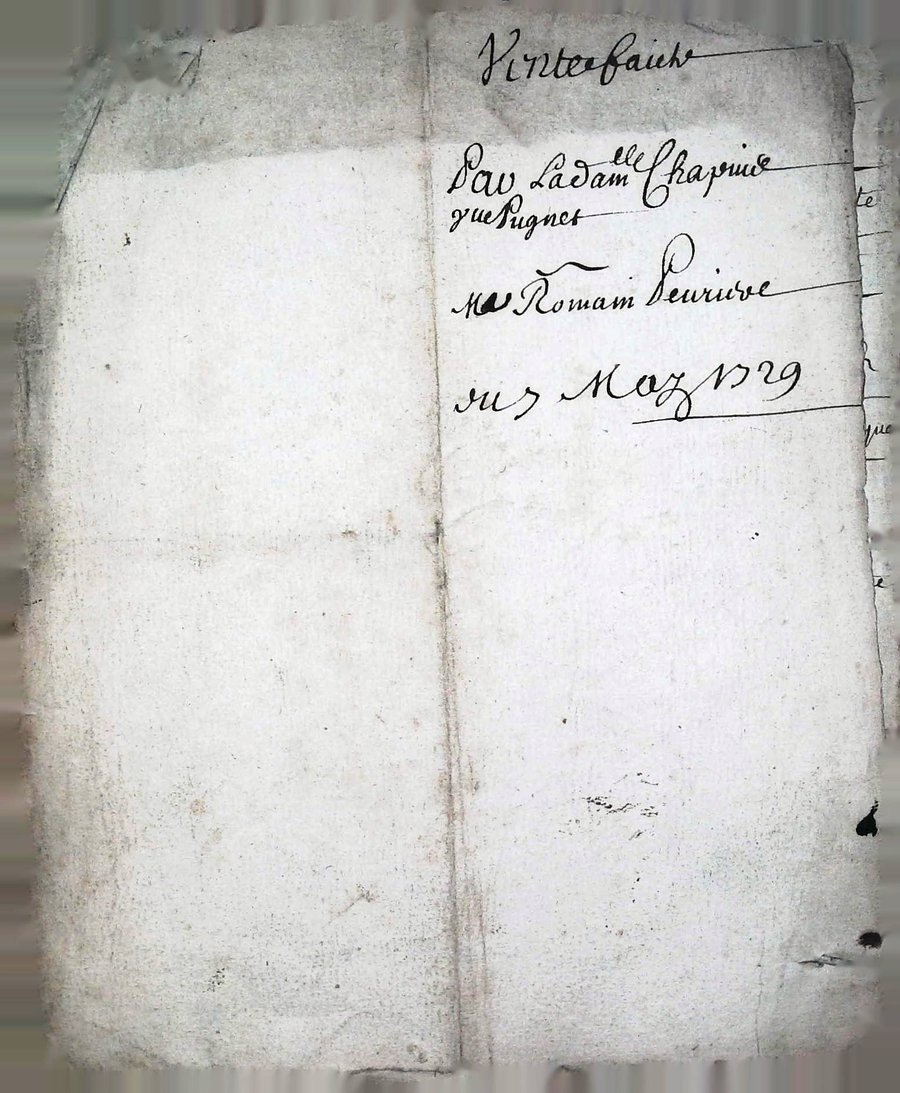 Vinte faicte
Par Ladam^elle Chapuis
vue Pugnet
Mr Romain Peurieve
du 7 May 1729
te
que